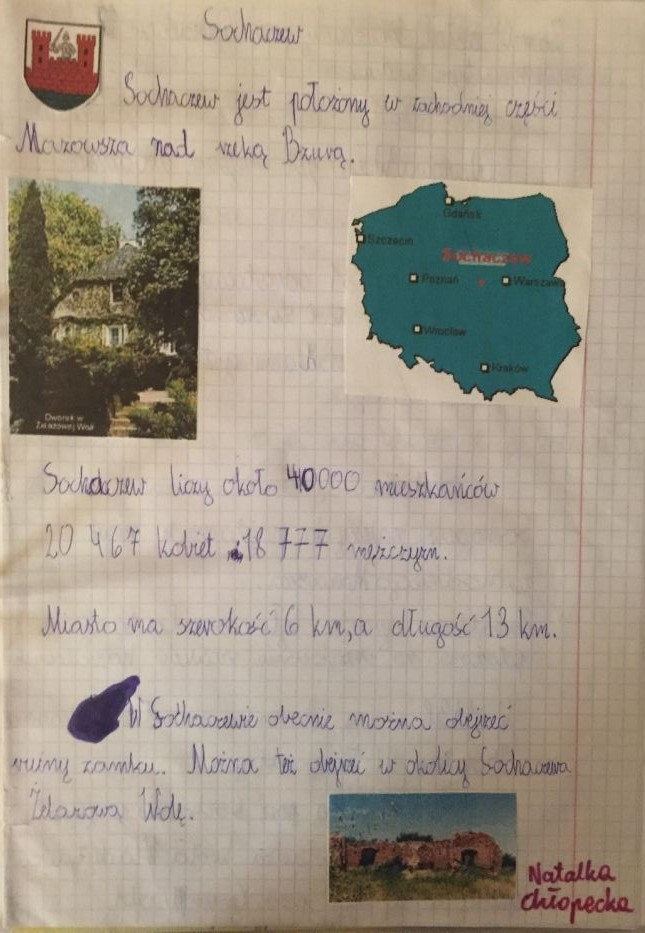 Sochaczew
Sochaczew jest położony w zachodniej części
Mazowsza nad rzeką Bzurą.
Gdańsk
Szczecin
Sochaczew
Poznań
Warszawa
Wrocław
Kraków
Dworek w
Żelazowej Woli
Sochaczew liczy około 40000 mieszkańców
20 467 kobiet i 18 777 mężczyzn.
Miasto ma szerokość 6 km, a długość 13 km.
W Sochaczewie obecnie można obejrzeć
ruiny zamku. Można też obejrzeć w okolicy Sochaczewa
Żelazowa Wolę.
Natalka
Chłopecka